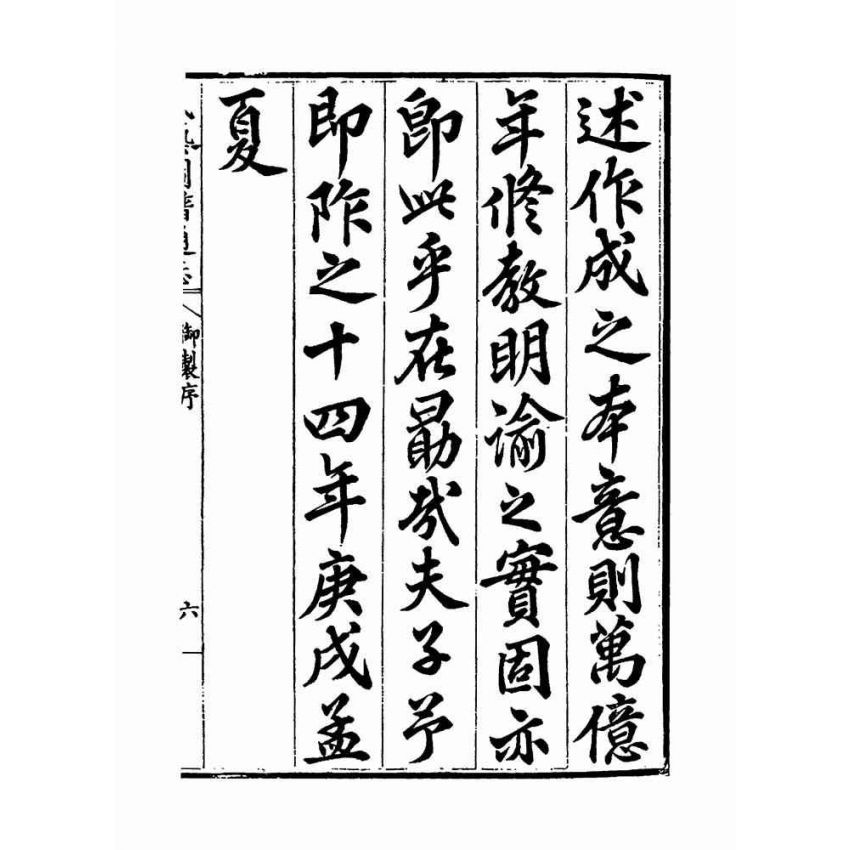 述作成之本意則萬億
年修教明諭之實固亦
即此乎在勖哉夫子予
即阼之十四年庚戌孟
夏
御製序
六